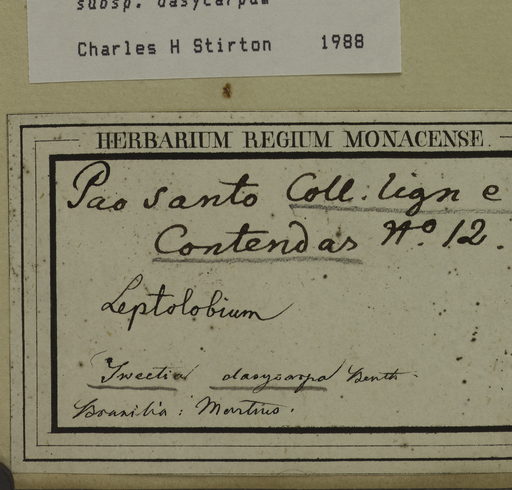 subsp. dasycarpum
Charles H Stirton 1988
HERBARIUM REGIUM MONACENSE
Pao santo Coll. lign e
Contendas No. 12.
Leptolobium
Sweetia dasycarpa Benth.
Brasilia: Martius.